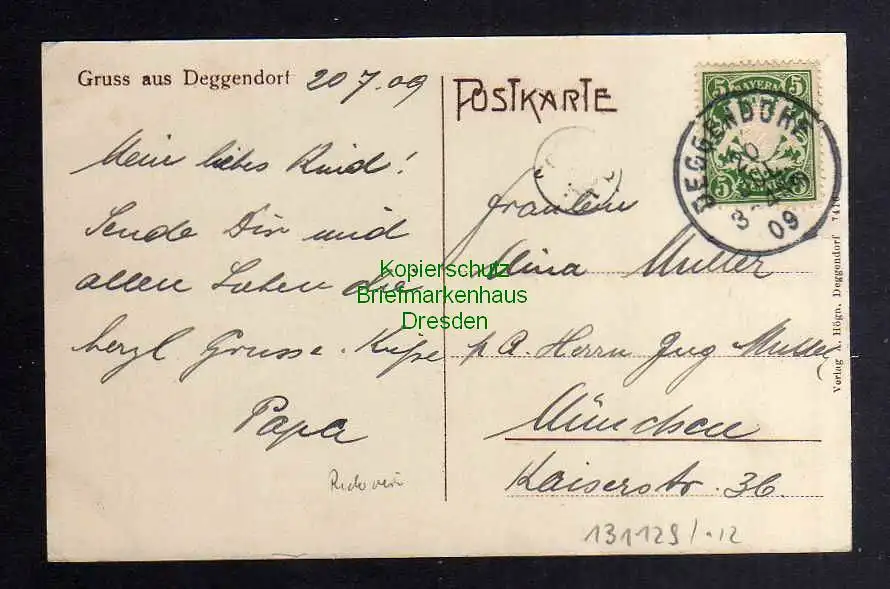 Gruss aus Deggendorf 20 7. 09
Mein liebes Kind!
Sende Dir und
allen Lieben die
herzl Grüsse. Küsse
Papa
POSTKARTE
5 BAYERN 5
5 5
DEGGENDORF
09
Fräulein
Mina Müller
p A. Herrn Jng Müller
München
Kaiserstr. 36.
131129/.12
Verlag A. Högn, Deggendorf 7416
Kopierschutz
Briefmarkenhaus
Dresden